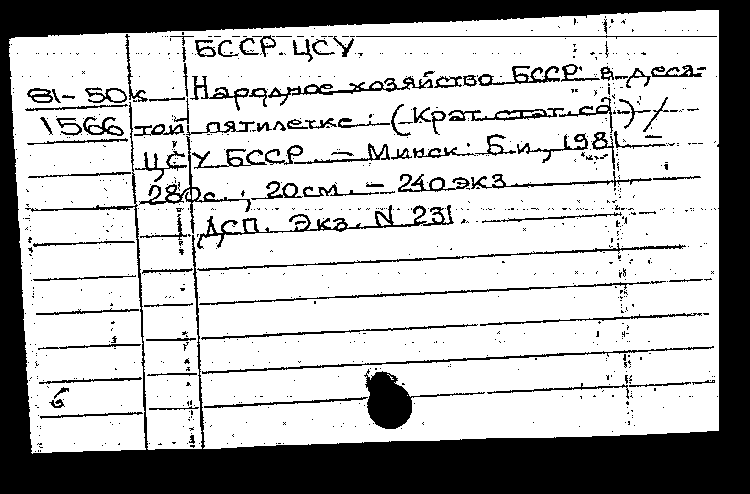 БССР. ЦСУ.
81-50к Народное хозяйство БССР в деся-
1566 той пятилетке: (Крат. стат. сб.) /
ЦСУ БССР. – Минск: Б.и., 1981. –
280с.; 20см. – 240экз.
ДСП. Экз. N 231.
б